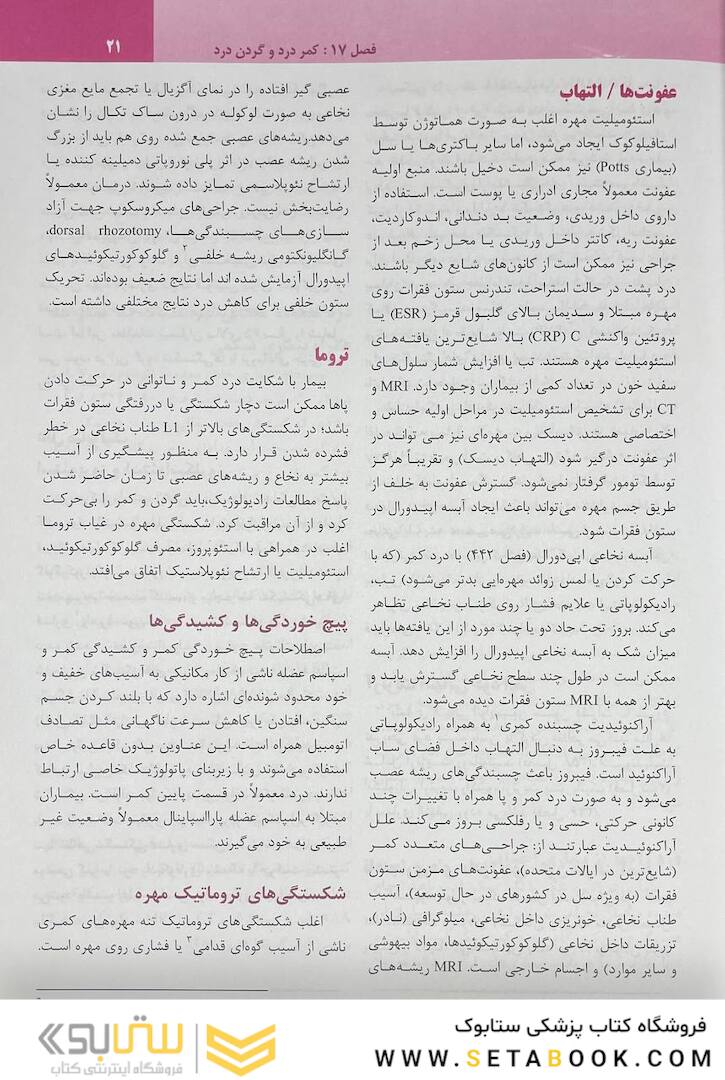 فصل ۱۷: کمر درد و گردن درد
۲۱
عفونت‌ها / التهاب
استئومیلیت مهره اغلب به صورت هماتوژن توسط
استافیلوکوک ایجاد می‌شود، اما سایر باکتری‌ها یا سل
(بیماری Potts) نیز ممکن است دخیل باشند. منبع اولیه
عفونت معمولاً مجاری ادراری یا پوست است. استفاده از
داروی داخل وریدی، وضعیت بد دندانی، اندوکاردیت،
عفونت ریه، کاتتر داخل وریدی یا محل زخم بعد از
جراحی نیز ممکن است از کانون‌های شایع دیگر باشند.
درد پشت در حالت استراحت، تندرنس ستون فقرات روی
مهره مبتلا و سدیمان بالای گلبول قرمز (ESR) یا
پروتئین واکنشی C (CRP) بالا شایع‌ترین یافته‌های
استئومیلیت مهره هستند. تب یا افزایش شمار سلول‌های
سفید خون در تعداد کمی از بیماران وجود دارد. MRI و
CT برای تشخیص استئومیلیت در مراحل اولیه حساس و
اختصاصی هستند. دیسک بین مهره‌ای نیز می تواند در
اثر عفونت درگیر شود (التهاب دیسک) و تقریباً هرگز
توسط تومور گرفتار نمی‌شود. گسترش عفونت به خلف از
طریق جسم مهره می‌تواند باعث ایجاد آبسه اپیدورال در
ستون فقرات شود.
آبسه نخاعی اپی‌دورال (فصل ۴۴۲) با درد کمر (که با
حرکت کردن یا لمس زوائد مهره‌ایی بدتر می‌شود) تب،
رادیکولوپاتی یا علایم فشار روی طناب نخاعی تظاهر
می‌کند. بروز تحت حاد دو یا چند مورد از این یافته‌ها باید
میزان شک به آبسه نخاعی اپیدورال را افزایش دهد. آبسه
ممکن است در طول چند سطح نخاعی گسترش یابد و
بهتر از همه با MRI ستون فقرات دیده می‌شود.
آراکنوئیدیت چسبنده کمری۱ به همراه رادیکولوپاتی
به علت فیبروز به دنبال التهاب داخل فضای ساب
آراکنوئید است. فیبروز باعث چسبندگی‌های ریشه عصب
می‌شود و به صورت درد کمر و پا همراه با تغییرات چند
کانونی حرکتی، حسی و یا رفلکسی بروز می‌کند. علل
آراکنوئیدیت عبارتند از: جراحی‌های متعدد کمر
(شایع‌ترین در ایالات متحده)، عفونت‌های مزمن ستون
فقرات (به ویژه سل در کشورهای در حال توسعه)، آسیب
طناب نخاعی، خونریزی داخل نخاعی، میلوگرافی (نادر)،
تزریقات داخل نخاعی (گلوکوکورتیکوئیدها، مواد بیهوشی
و سایر موارد) و اجسام خارجی است. MRI ریشه‌های
عصبی گیر افتاده را در نمای آگزیال یا تجمع مایع مغزی
نخاعی به صورت لوکوله در درون ساک تکال را نشان
می‌دهد.ریشه‌های عصبی جمع شده روی هم باید از بزرگ
شدن ریشه عصب در اثر پلی نوروپاتی دمیلینه کننده یا
ارتشاح نئوپلاسمی تمایز داده شوند. درمان معمولاً
رضایت‌بخش نیست. جراحی‌های میکروسکوپ جهت آزاد
سازی‌های چسبندگی‌ها، dorsal rhozotomy،
گانگلیونکتومی ریشه خلفی۲ و گلوکوکورتیکوئیدهای
اپیدورال آزمایش شده اند اما نتایج ضعیف بوده‌اند. تحریک
ستون خلفی برای کاهش درد نتایج مختلفی داشته است.
تروما
بیمار با شکایت درد کمر و ناتوانی در حرکت دادن
پاها ممکن است دچار شکستگی یا دررفتگی ستون فقرات
باشد؛ در شکستگی‌های بالاتر از L1 طناب نخاعی در خطر
فشرده شدن قرار دارد. به منظور پیشگیری از آسیب
بیشتر به نخاع و ریشه‌های عصبی تا زمان حاضر شدن
پاسخ مطالعات رادیولوژیک،باید گردن و کمر را بی‌حرکت
کرد و از آن مراقبت کرد. شکستگی مهره در غیاب تروما
اغلب در همراهی با استئوپروز، مصرف گلوکوکورتیکوئید،
استئومیلیت یا ارتشاح نئوپلاستیک اتفاق می‌افتد.
پیچ خوردگی‌ها و کشیدگی‌ها
اصطلاحات پیچ خوردگی کمر و کشیدگی کمر و
اسپاسم عضله ناشی از کار مکانیکی به آسیب‌های خفیف و
خود محدود شونده‌ای اشاره دارد که با بلند کردن جسم
سنگین، افتادن یا کاهش سرعت ناگهانی مثل تصادف
اتومبیل همراه است. این عناوین بدون قاعده خاص
استفاده می‌شوند و با زیربنای پاتولوژیک خاصی ارتباط
ندارند. درد معمولاً در قسمت پایین کمر است. بیماران
مبتلا به اسپاسم عضله پارااسپاینال معمولاً وضعیت غیر
طبیعی به خود می‌گیرند.
شکستگی‌های تروماتیک مهره
اغلب شکستگی‌های تروماتیک تنه مهره‌های کمری
ناشی از آسیب گوه‌ای قدامی۳ یا فشاری روی مهره است.
فروشگاه کتاب پزشکی ستابوک
WWW.SETABOOK.COM
ستابوک
فروشگاه اینترنتی کتاب